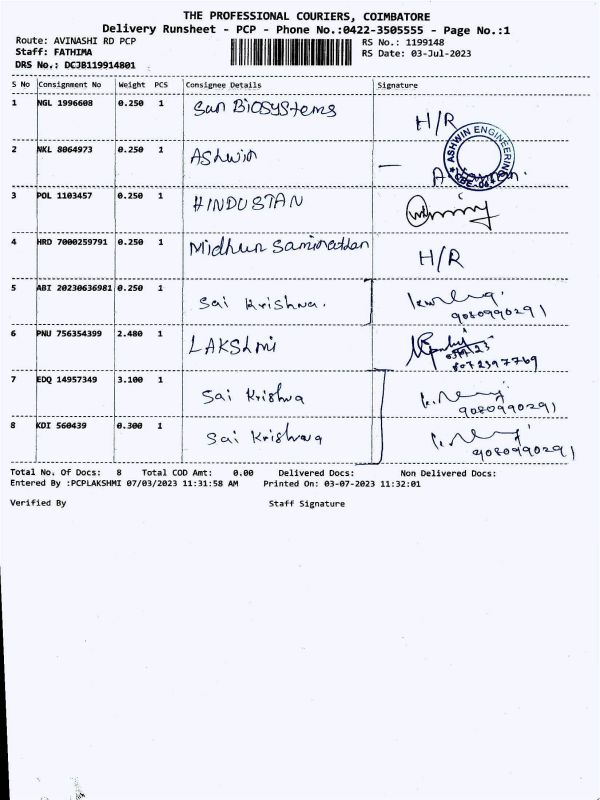 THE PROFESSIONAL COURIERS, COIMBATORE
Delivery Runsheet - PCP - Phone No.:0422-3505555 - Page No.:1
Route: AVINASHI RD PCP RS No.: 1199148
Staff: FATHIMA RS Date: 03-Jul-2023
DRS No.: DCJB119914801
S No Consignment No Weight PCS Consignee Details Signature
1 NGL 1996608 0.250 1 Sun BioSystems H/R
2 NKL 8064973 0.250 1 Ashwin
ASHWIN ENGINEERING
3 POL 1103457 0.250 1 HINDUSTAN
4 HRD 7000259791 0.250 1 Midhun Saminathan H/R
5 ABI 20230636981 0.250 1 Sai Krishna. 9080990291
6 PNU 756354399 2.480 1 LAKShmi
8072397769
7 EDQ 14957349 3.100 1 Sai Krishna 9080990291
8 KDI 560439 0.300 1 Sai Krishna 9080990291
Total No. Of Docs: 8 Total COD Amt: 0.00 Delivered Docs: Non Delivered Docs:
Entered By :PCPLAKSHMI 07/03/2023 11:31:58 AM Printed On: 03-07-2023 11:32:01
Verified By Staff Signature